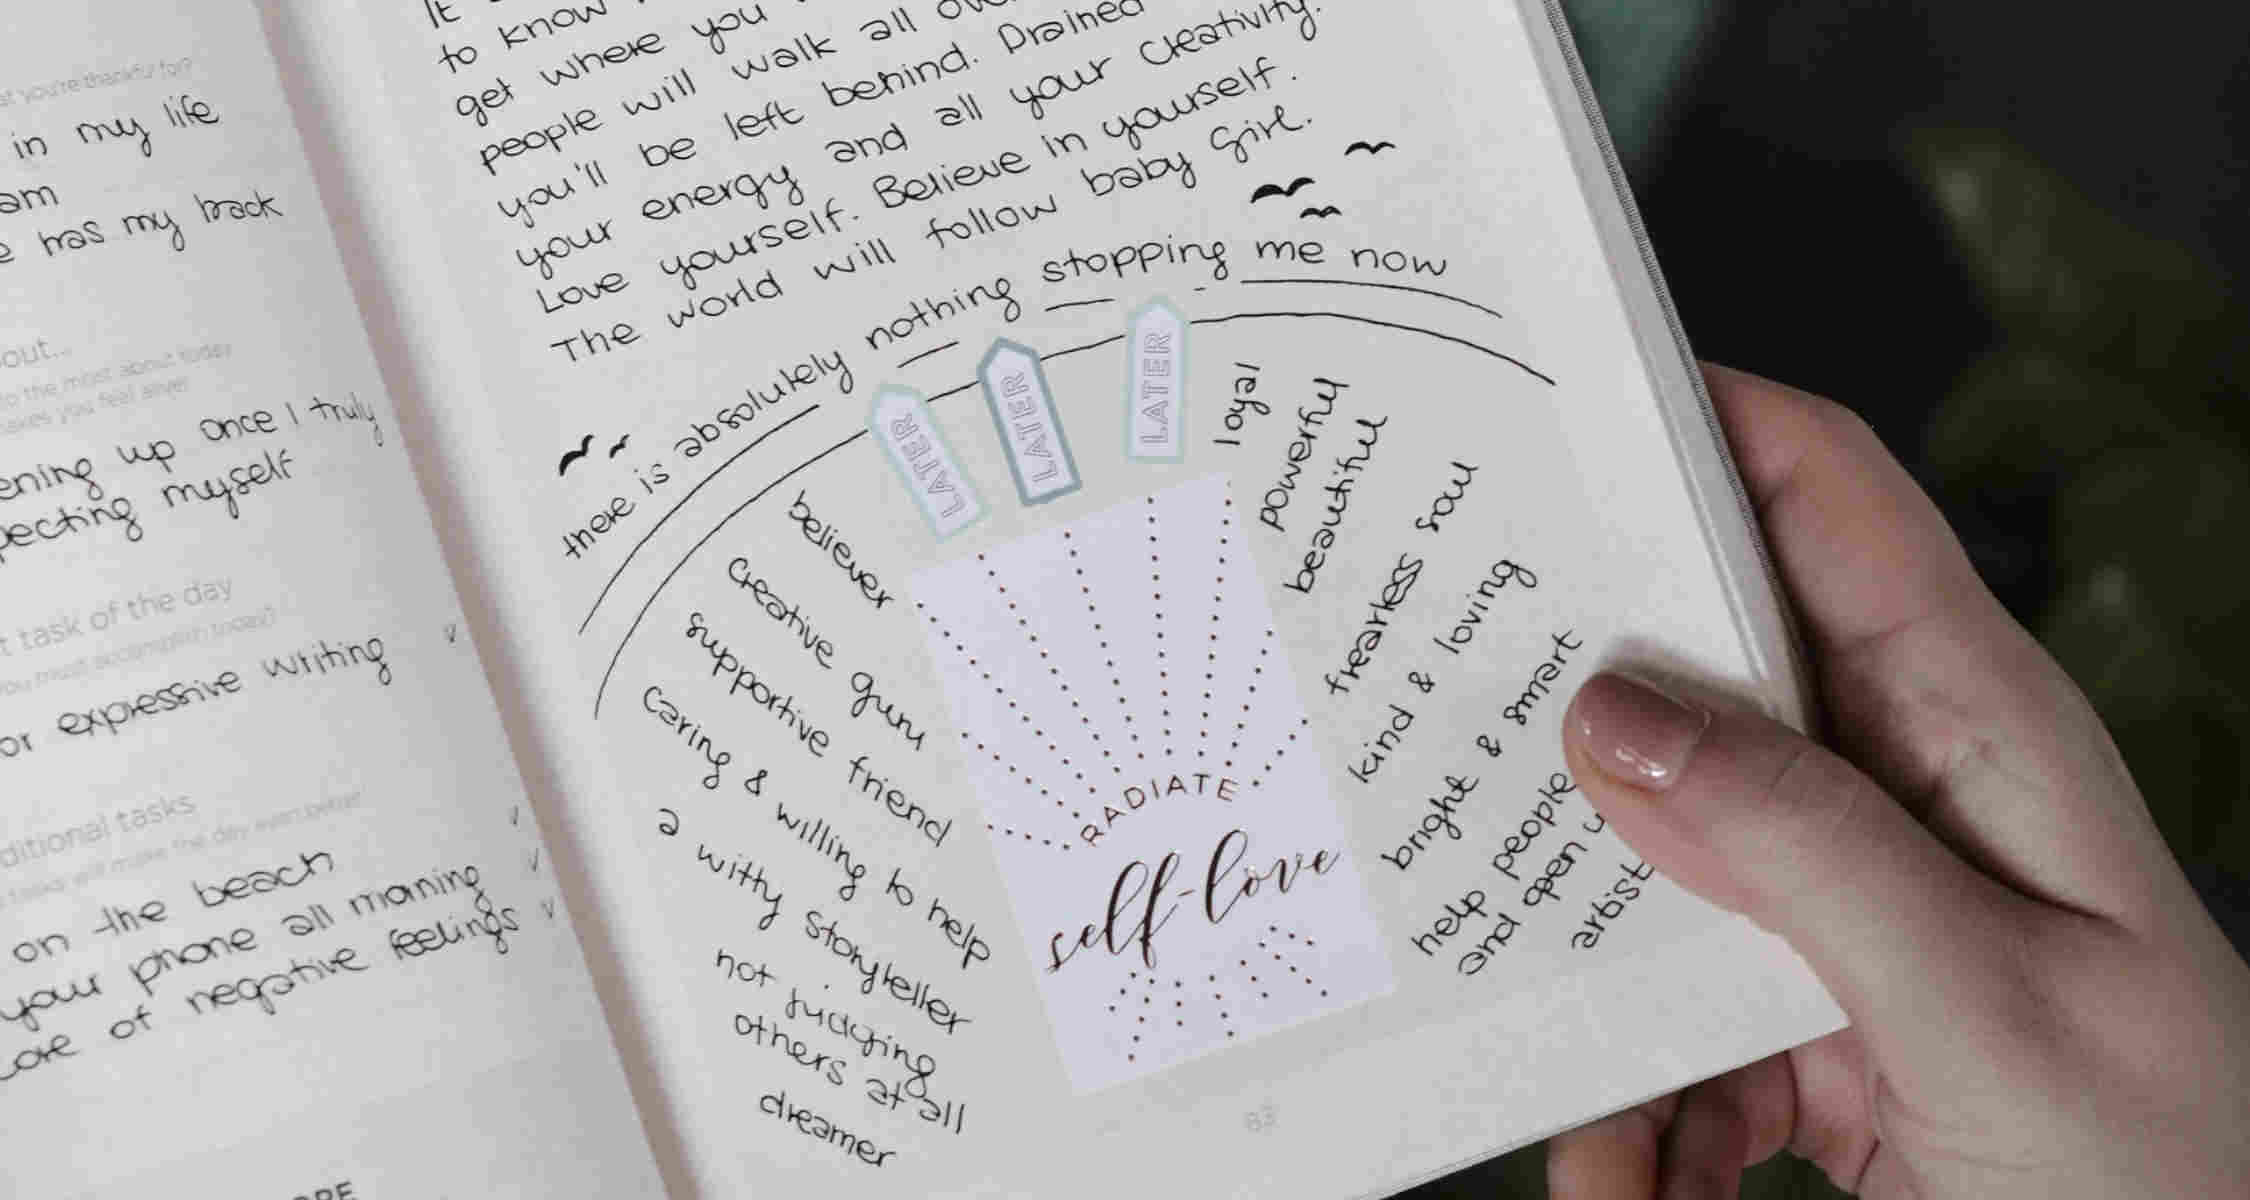 at you're thankful for?
in my life
am
has my back
out...
to the most about today
akes you feel alive!
ening up once I truly
pecting myself
t task of the day
you must accomplish today?
or expressive writing
ditional tasks
tasks will make the day even better
on the beach
your phone all morning
of negative feelings
It
to know
get where you
people will walk all
you'll be left behind. Drained
your energy and all your creativity.
Love yourself. Believe in yourself.
The world will follow baby girl.
there is absolutely nothing stopping me now
LATER
LATER
LATER
believer
creative guru
supportive friend
caring & willing to help
a witty storyteller
not judging
others at all
dreamer
RADIATE
self-love
loyal
powerful
beautiful
fearless soul
kind & loving
bright & smart
help people
and open
artist
83